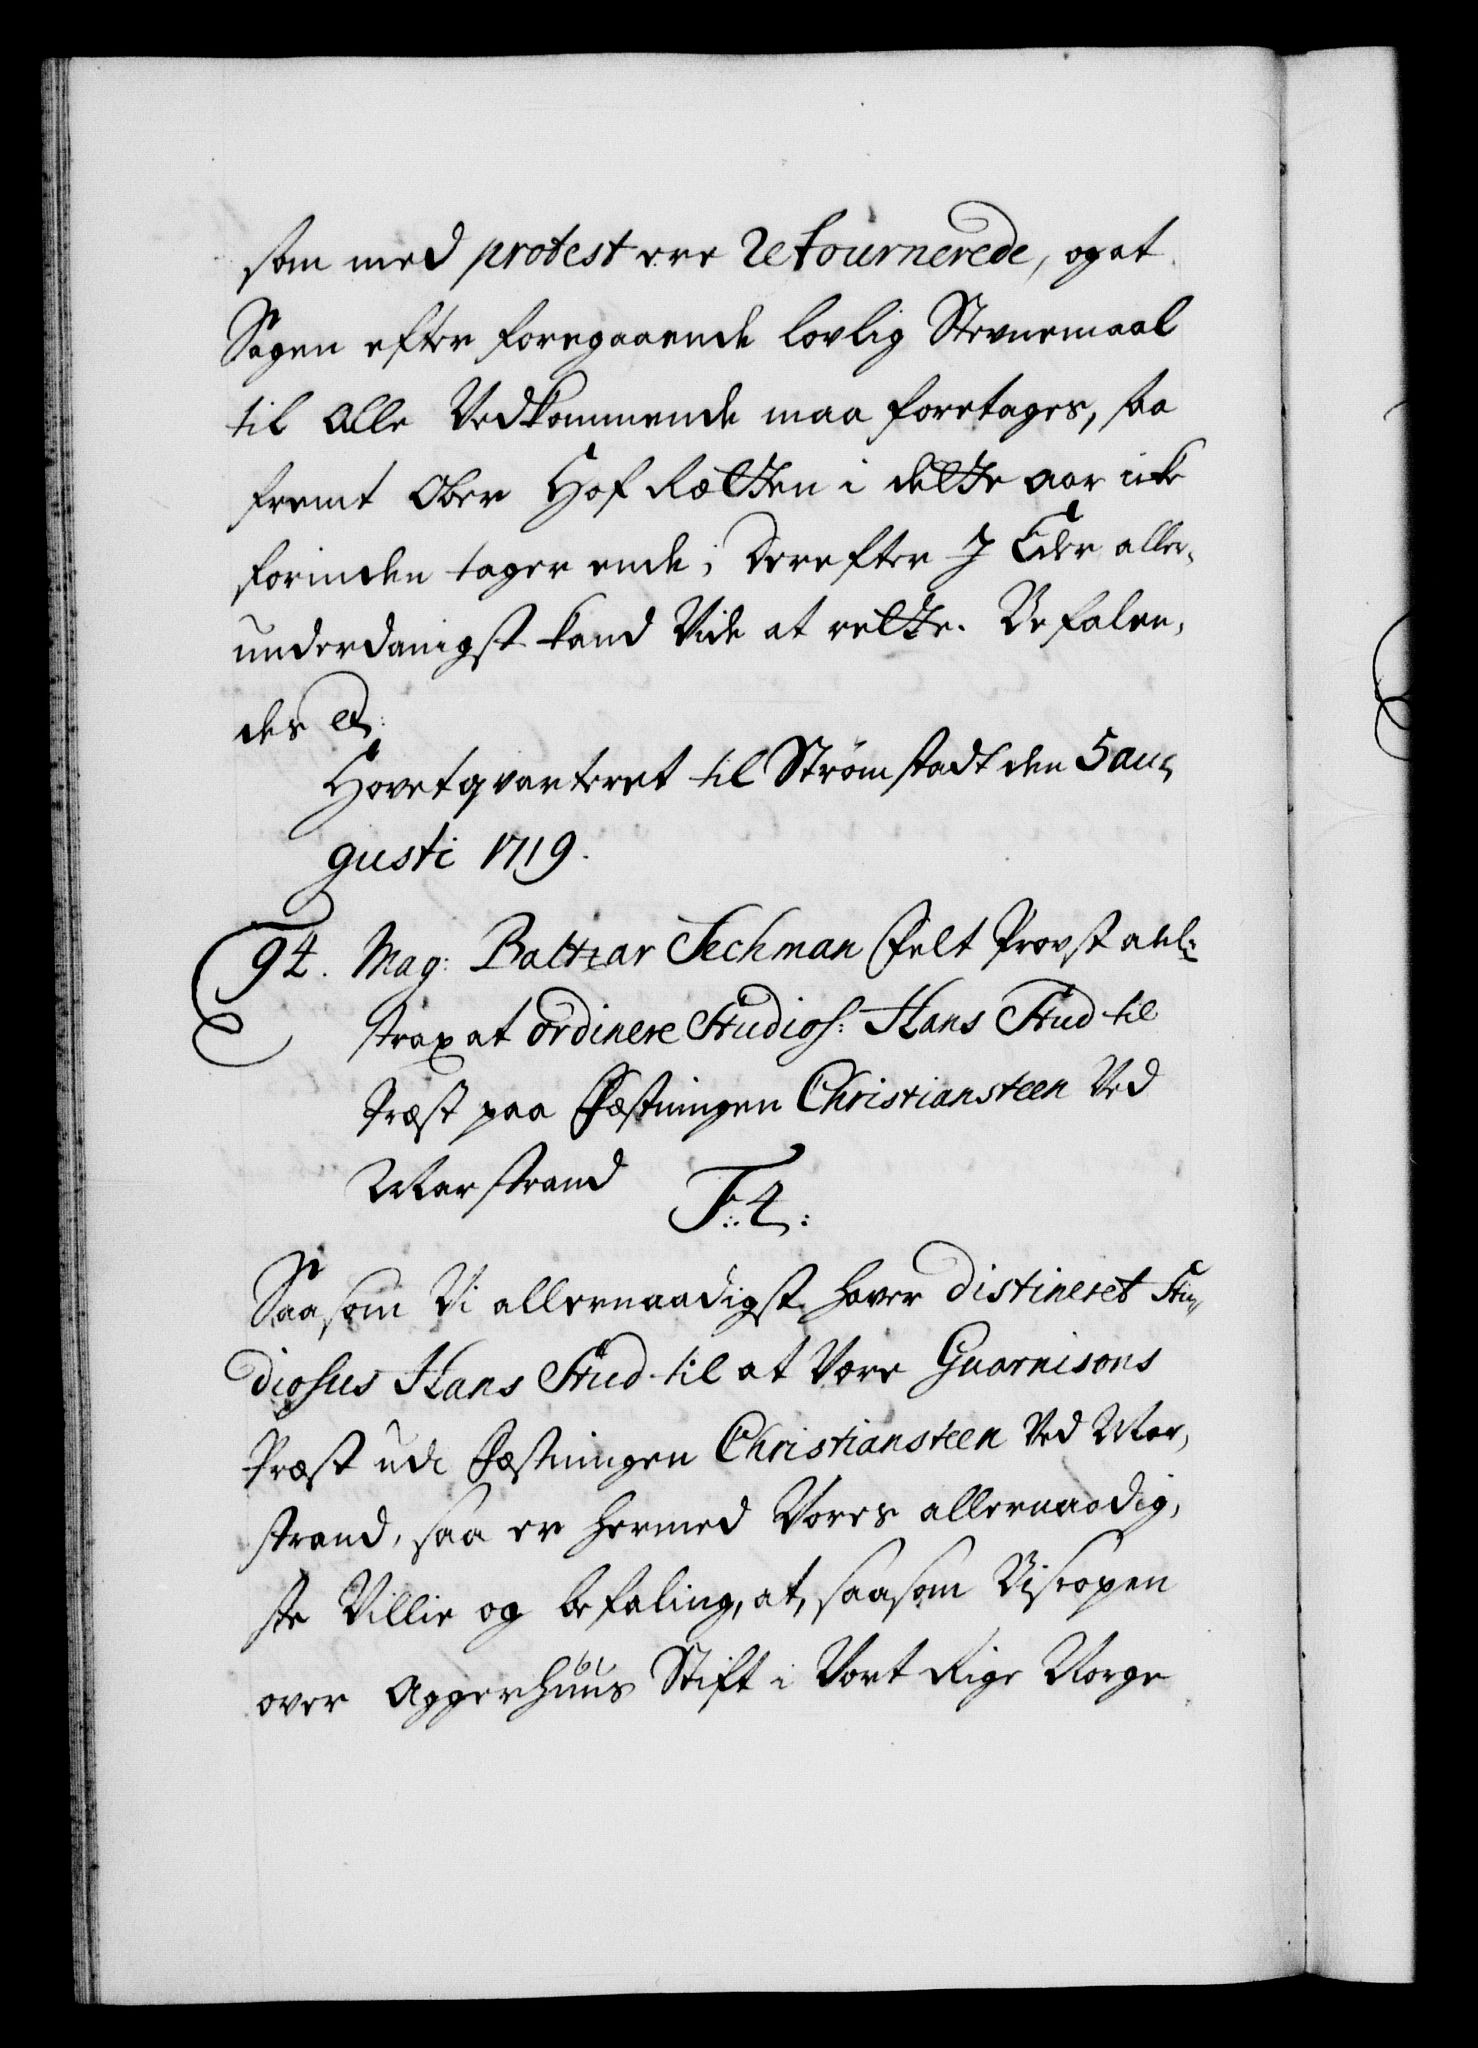 som med protest ere Retournerede, og at
Sagen efter foregaaende lovlig Stevnemaal
til Alle Vedkommende maa foretages, saa
fremt Ober Hof Rætten i dette aar icke
forinden tager ende; Derefter I Eder aller,
underdanigst kand Vide at rette. Befalen,
des etc:
Hovetqvarteret til Strømstadt den 5 au,
gusti 1719.
94. Mag: Baltzar Sechman Felt Provst anl:
strax at ordinere Studios: Hans Stud til
Præst paa Fæstningen Christiansteen Ved
Marstrand F: 4:
Saasom Vi allernaadigst haver distineret Stu,
diosus Hans Stud til at Være Guarnisons
Præst udi Fæstningen Christiansteen Ved Mar,
strand, saa er hermed Vores allernaadig,
ste Villie og befaling, at, saasom Biscopen
over Aggerhuus Stift i Vort Rige Norge